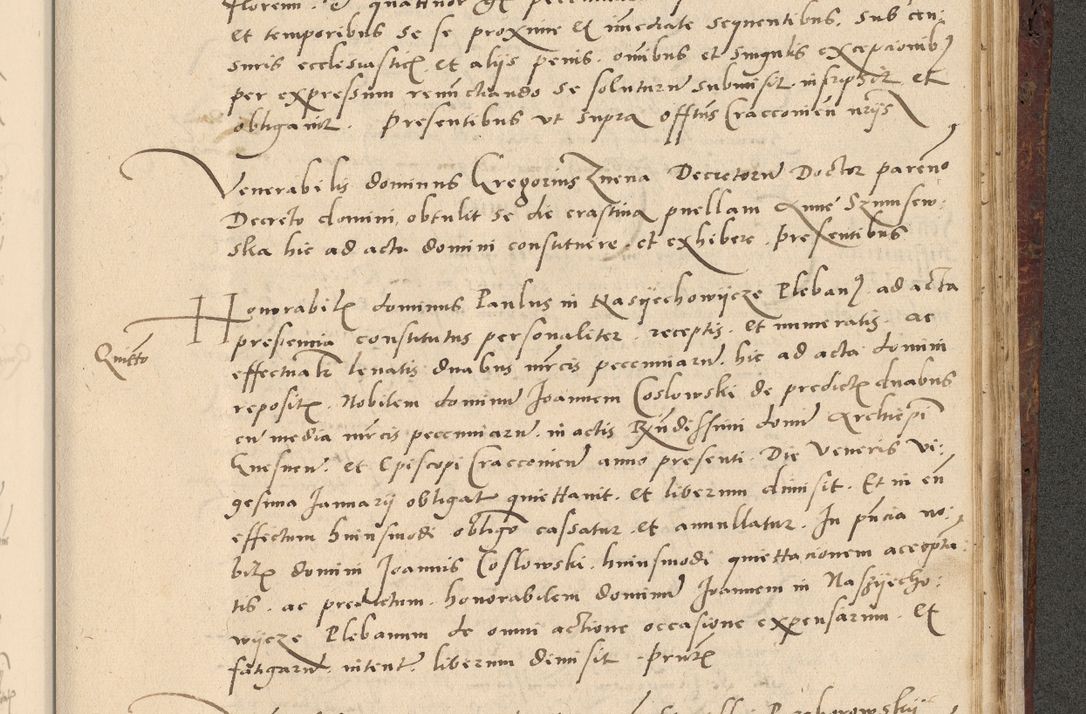 et temporibus se se proxime et imediate sequentibus, sub cen:
suris ecclesiastic et alijs penis, omibus et singulis exceptionib9
per expressum renunctiando se soluturum submisit, inscripsit et
obligavit. Presentibus ut supra offtus Cracconien nrijs
Venerabilis dominus Gregorius Znena Decretoru Doctor pareno
Decreto domini obtulit se die crastina puellam Anne Szmusew:
ska hic ad acta domini constituere et exhibere. Presentibus
Honorabil dominus Paulus in Nasyechowycze Pleban9 ad acta
presencia constitutus personaliter, receptis et numeratis ac
Quietto
effectualr levatis duabus mrcis pecuniaru hic ad acta domini
reposit. Nobilem dominu Joannem Coslowski de predict duabus
cu media mrcis pecuniaru in actis Rndissimi domi Archiepi
Gnesnen et Episcopi Cracconien anno presenti Die Veneris vi:
gesima Januarij obligat quiettavit et liberum dimisit. Et in en
effectum huiusmodi obligo cassatur et annullatur. In pncia no:
bil domini Joannis Coslowski huiusmodi quiettacionem accepta:
tis, ac predictum honorabilem dominu Joannem in Naszyecho:
wycze Plebanum de omni actione occasione expensarum et
fatigaru intent liberum dimisit Prnt